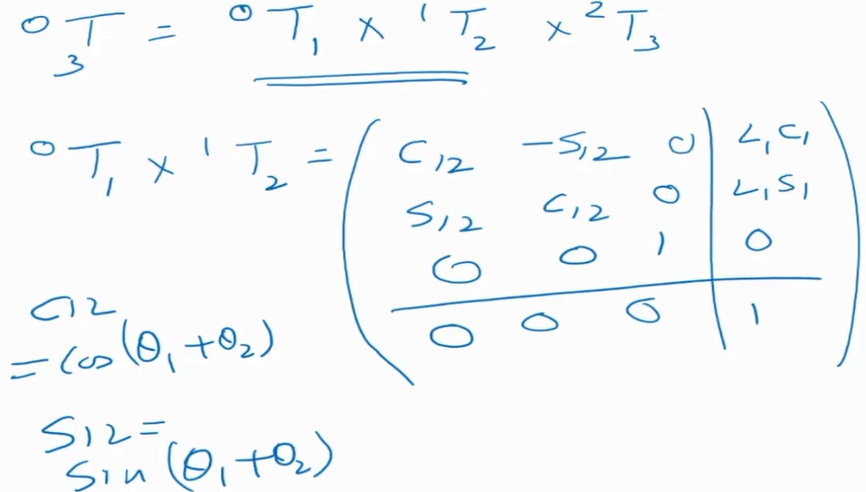 ⁰₃T = ⁰T₁ × ¹T₂ × ²T₃
⁰T₁ × ¹T₂ =
C₁₂ -S₁₂ 0 L₁C₁
S₁₂ C₁₂ 0 L₁S₁
0 0 1 0
0 0 0 1
C12
= Cos (θ₁+θ₂)
S12 =
Sin (θ₁+θ₂)